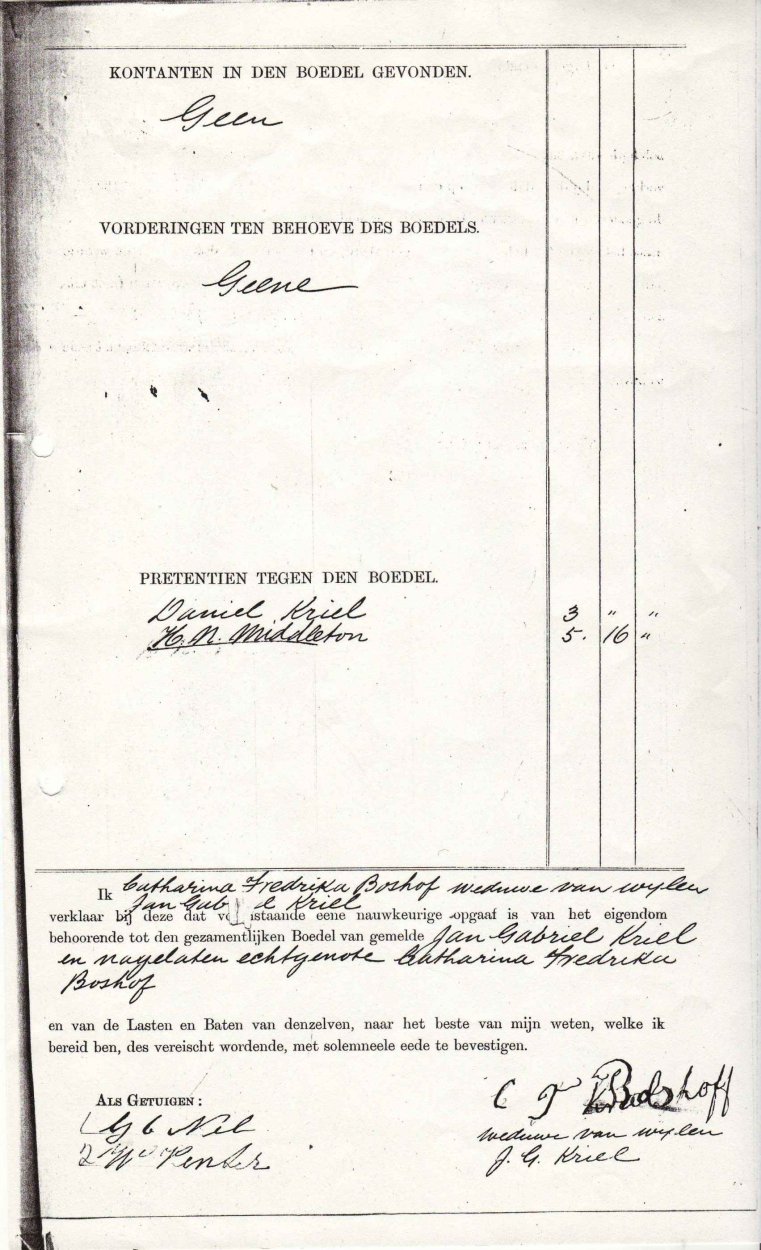 KONTANTEN IN DEN BOEDEL GEVONDEN.
Geen
VORDERINGEN TEN BEHOEVE DES BOEDELS.
Geene
PRETENTIEN TEGEN DEN BOEDEL.
Daniel Kriel 3 " "
H. N. Middleton 5. 16 "
Ik Catharina Fredrika Boshof weduwe van wylen
Jan Gab l Kriel
verklaar bij deze dat vo istaande eene nauwkeurige opgaaf is van het eigendom
behoorende tot den gezamentlijken Boedel van gemelde Jan Gabriel Kriel
en nagelaten echtgenote Catharina Fredrika
Boshof
en van de Lasten en Baten van denzelven, naar het beste van mijn weten, welke ik
bereid ben, des vereischt wordende, met solemneele eede te bevestigen.
ALS GETUIGEN:
1 G C Nel
2
C F Boshoff
weduwe van wylen
J. G. Kriel